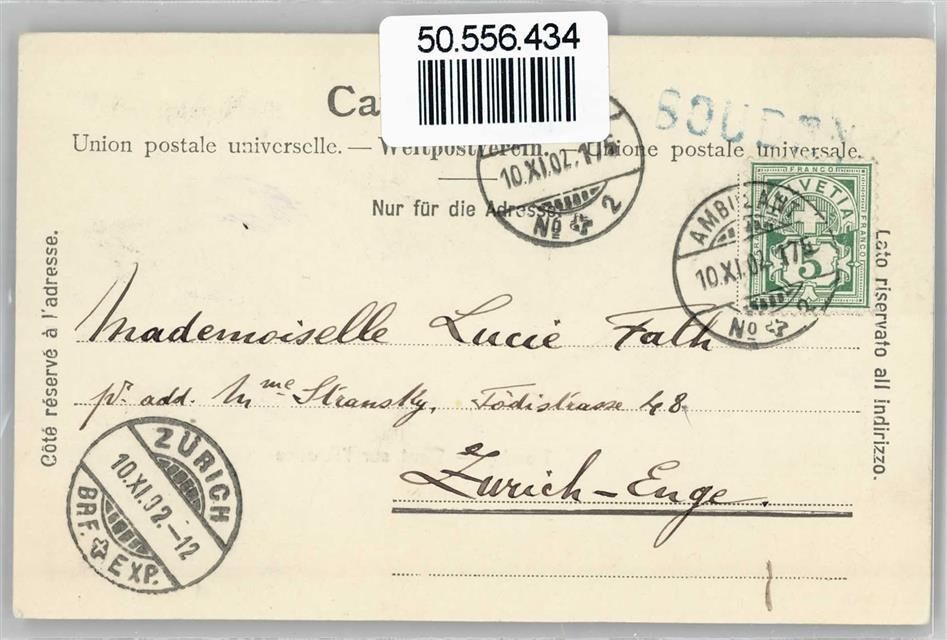 50.556.434
Ca
Union postale universelle. — Weltpostverein. — Unione postale universale.
Nur für die Adresse
10.XI.02. 175
No 2
FRANCO
HELVETIA
FRANCO FRANCO
5
AMBULANT
10.XI.02. 175
No 2
Côté réservé à l'adresse.
Lato riservato all indirizzo.
Mademoiselle Lucie Fath
pr add. Mme Stransky, Tödistrasse 48
Zürich-Enge
ZÜRICH
10.XI.02.-12
BRF. EXP.